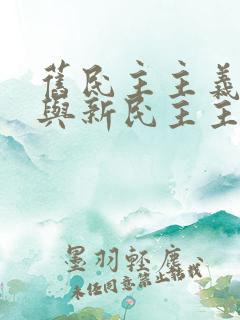 舊民主主義
與新民主主
墨羽輕塵
未任同意禁止轉載